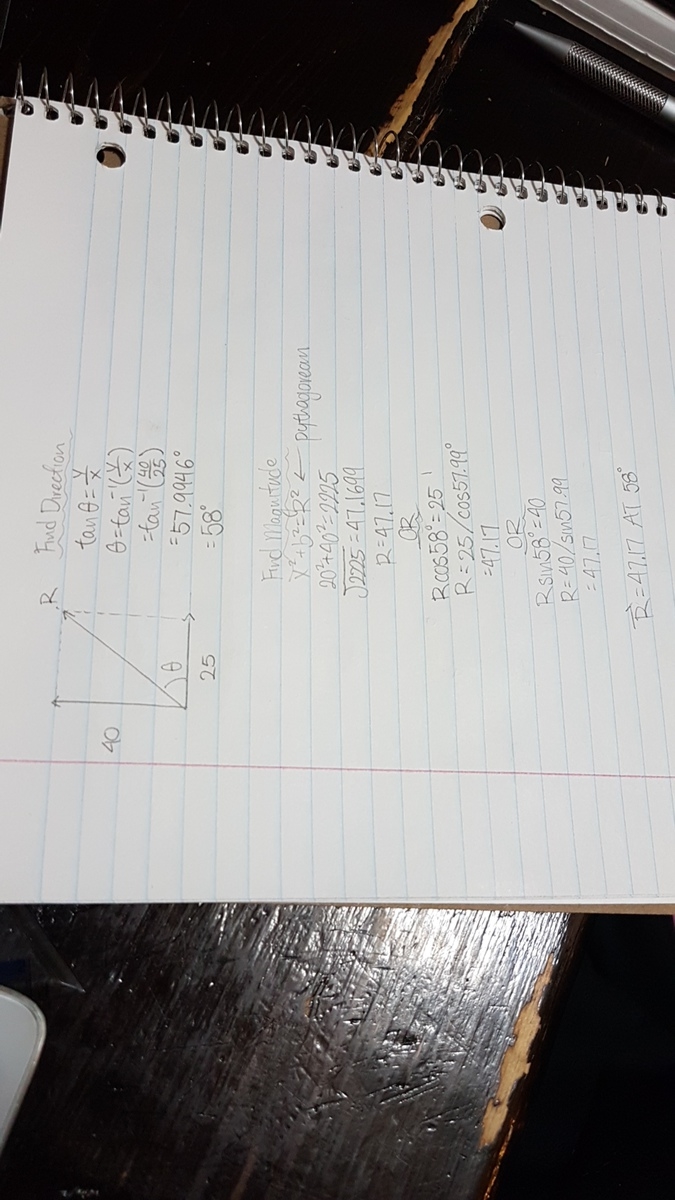 40
R
θ
25
Find Direction
tan θ = y/x
θ = tan⁻¹(y/x)
= tan⁻¹(40/25)
= 57.9946°
= 58°
Find Magnitude
x² + y² = R² ← pythagorean
20² + 40² = 2225
√2225 = 47.1699
R = 47.17
OR
R cos 58° = 25
R = 25/cos 57.99°
= 47.17
OR
R sin 58° = 40
R = 40/sin 57.99
= 47.17
R⃗ = 47.17 AT 58°